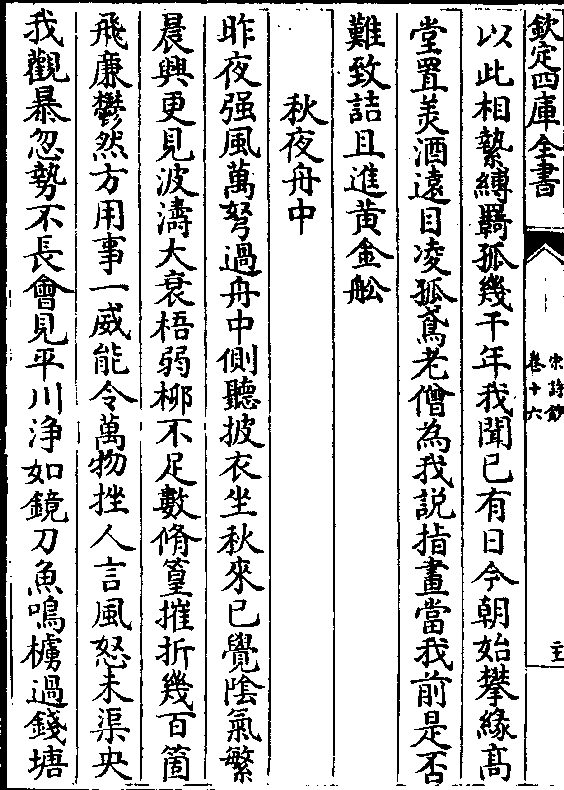 欽定四庫全書
宋詩鈔
卷十六
以此相縶縛羇孤幾千年我聞已有日今朝始攀緣髙
堂置美酒遠目凌孤鳶老僧為我説指畫當我前是否
難致詰且進黄金舩
秋夜舟中
昨夜强風萬弩過舟中側聽披衣坐秋來已覺隂氣繁
晨興更見波濤大衰梧弱栁不足數脩篁摧折幾百箇
飛廉鬱然方用事一威能令萬物挫人言風怒未渠央
我觀暴忽勢不長會見平川浄如鏡刀魚鳴櫓過錢塘